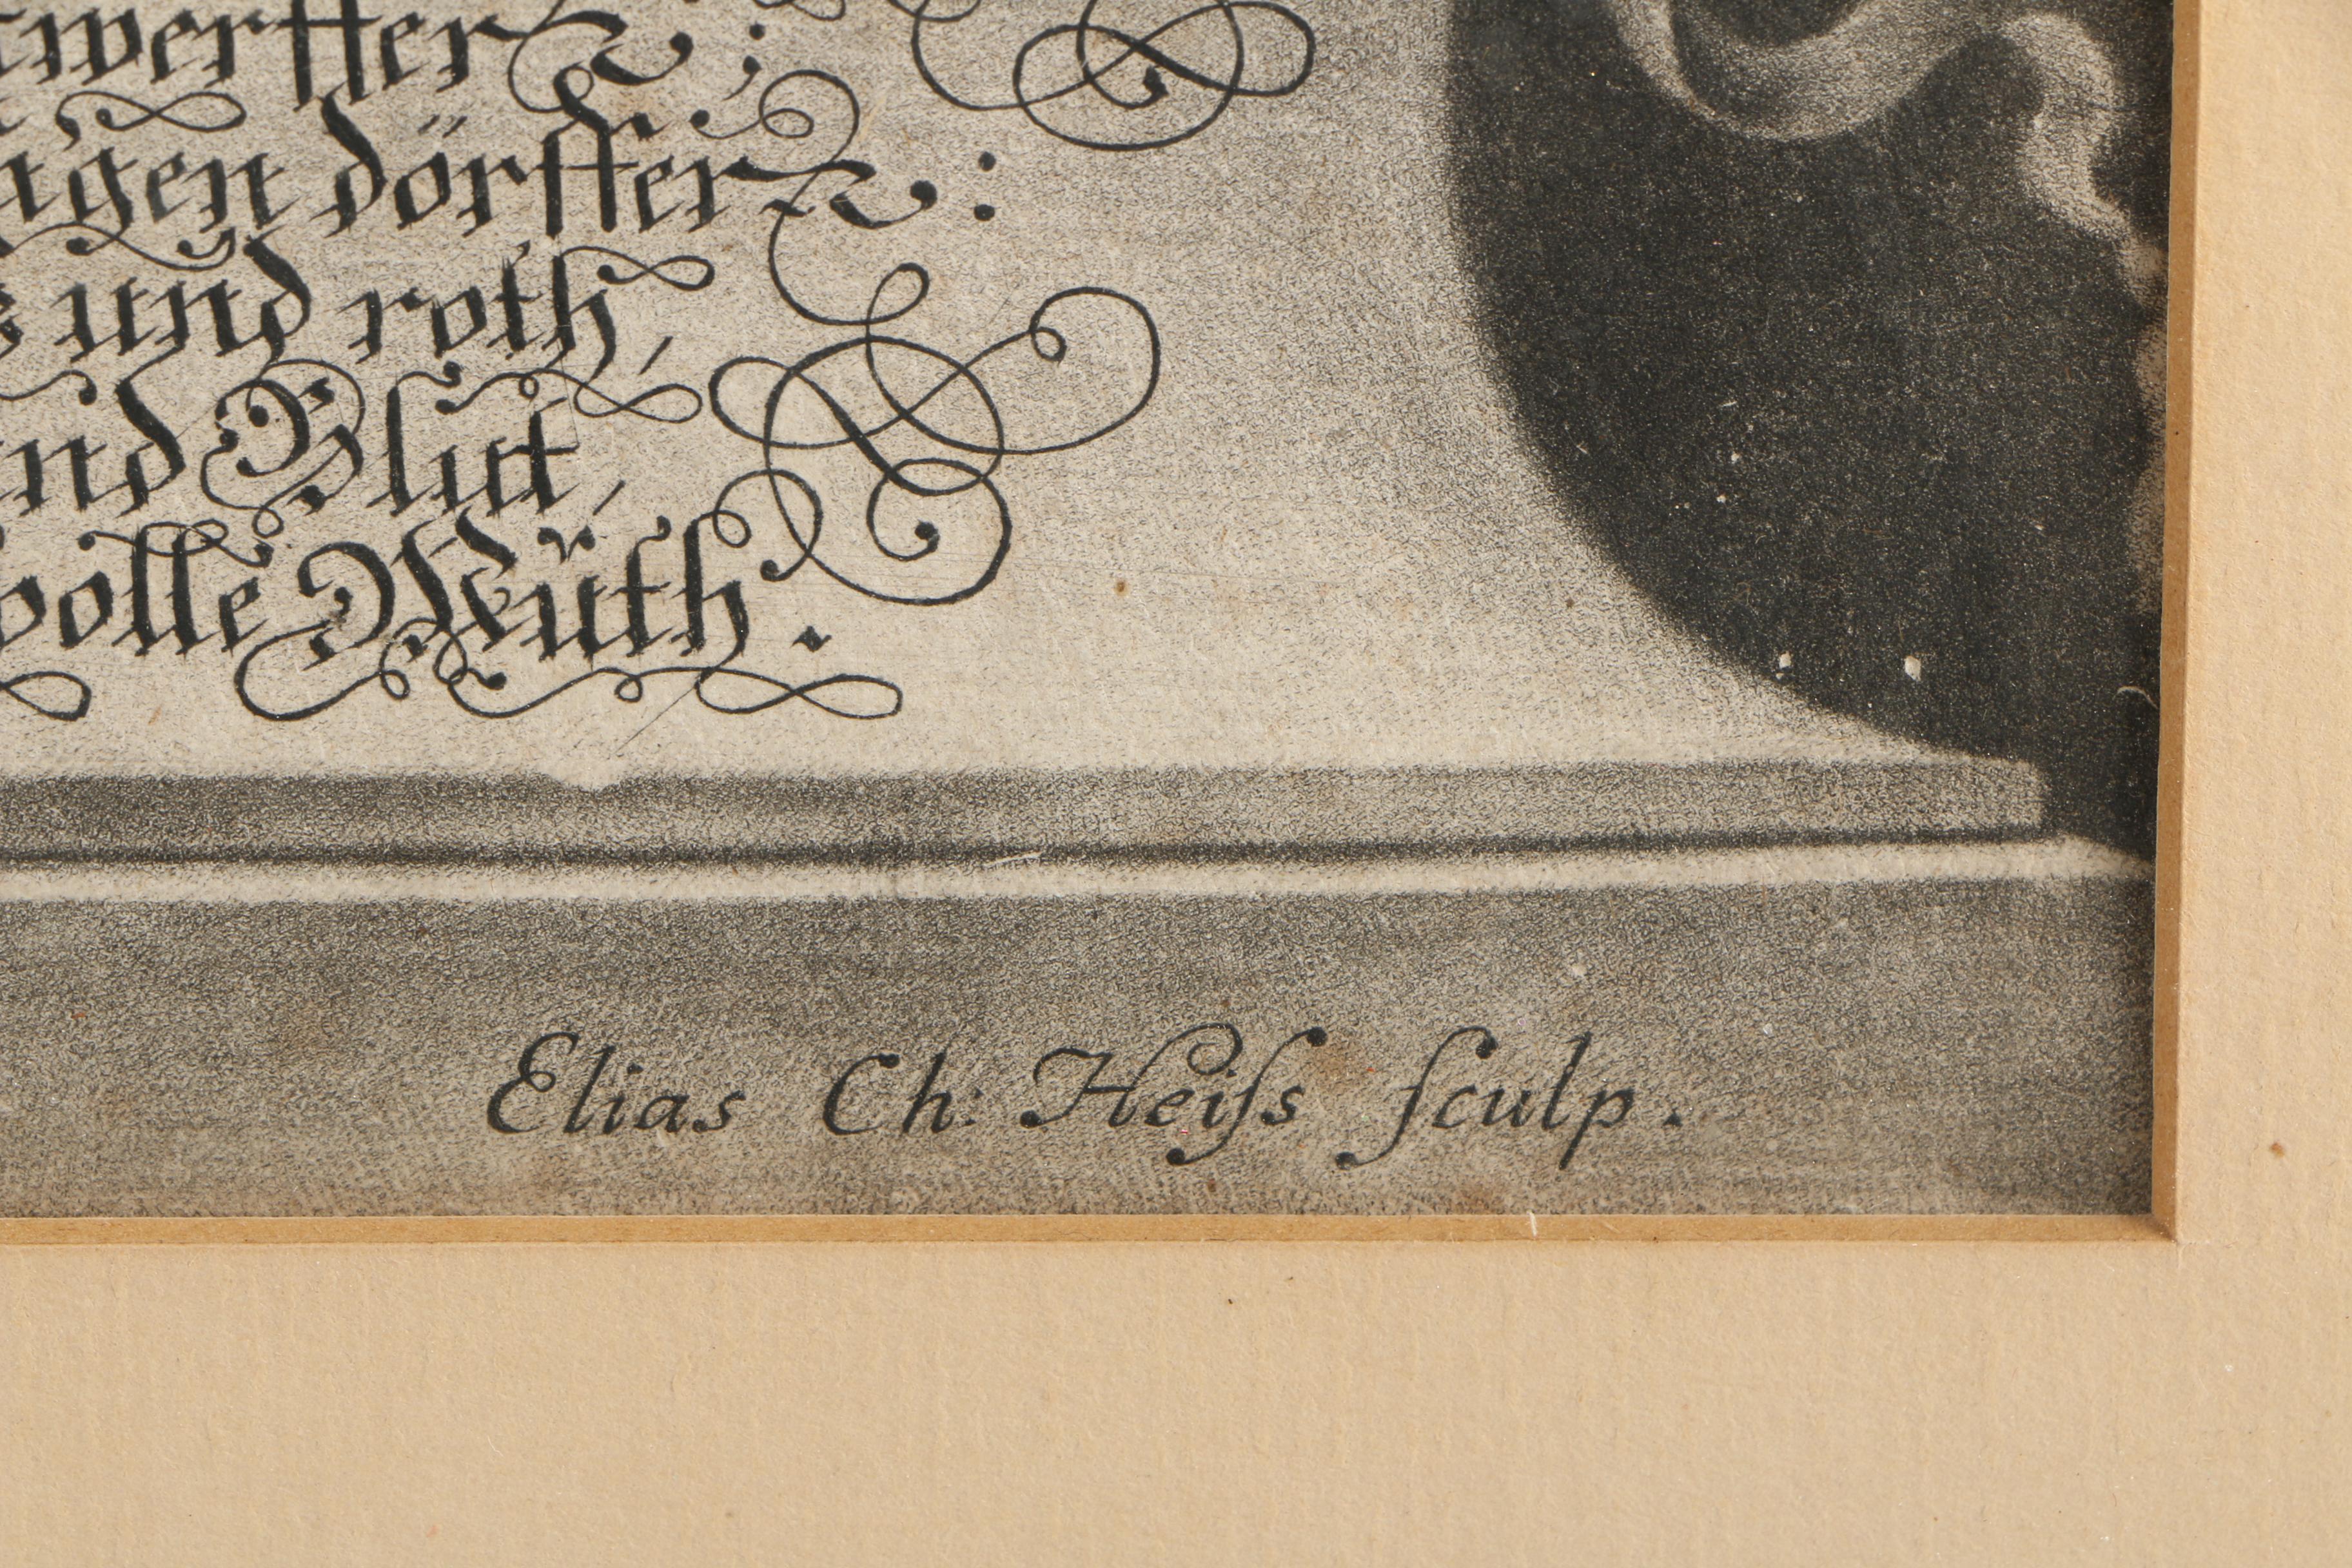 werffer:
gen dörffer:
und roth,
und Blut,
volle Wuth.
Elias Ch: Heiſs ſculp.